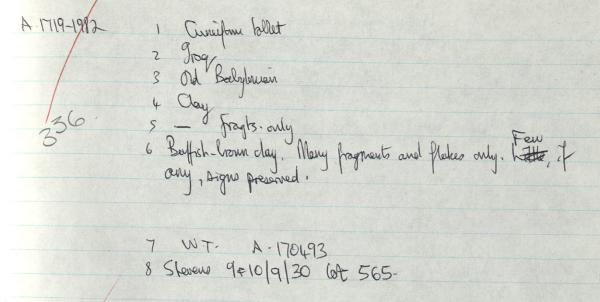 A.1719-1982
1 Cuneiform tablet
2 Iraq
3 Old Babylonian
4 Clay
336
5 — fragts. only
6 Buffish-brown clay. Many fragments and flakes only. Few, if
any, signs preserved.
7 W.T. A.170493
8 Stevens 9+10/9/30 Lot 565-